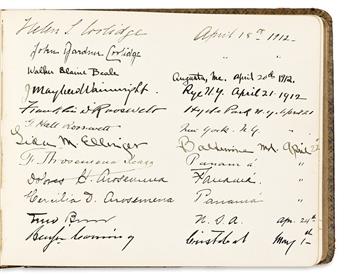 Helen S. Coolidge April 15th 1912.
John Gardner Coolidge " "
Walker Blaine Beale Augusta, Me. April 20th 1912.
J Mayhew Wainwright. Rye N.Y. April 21. 1912
Franklin D Roosevelt Hyde Park N.Y. April 21
G Hall Roosevelt New York. N.Y.
M. Baltimore Md. April 22
F. Arosemena Panamá "
D. Arosemena Panamá. "
Cecilia D. Arosemena Panamá "
U.S.A. Apr. 24th
May 1st